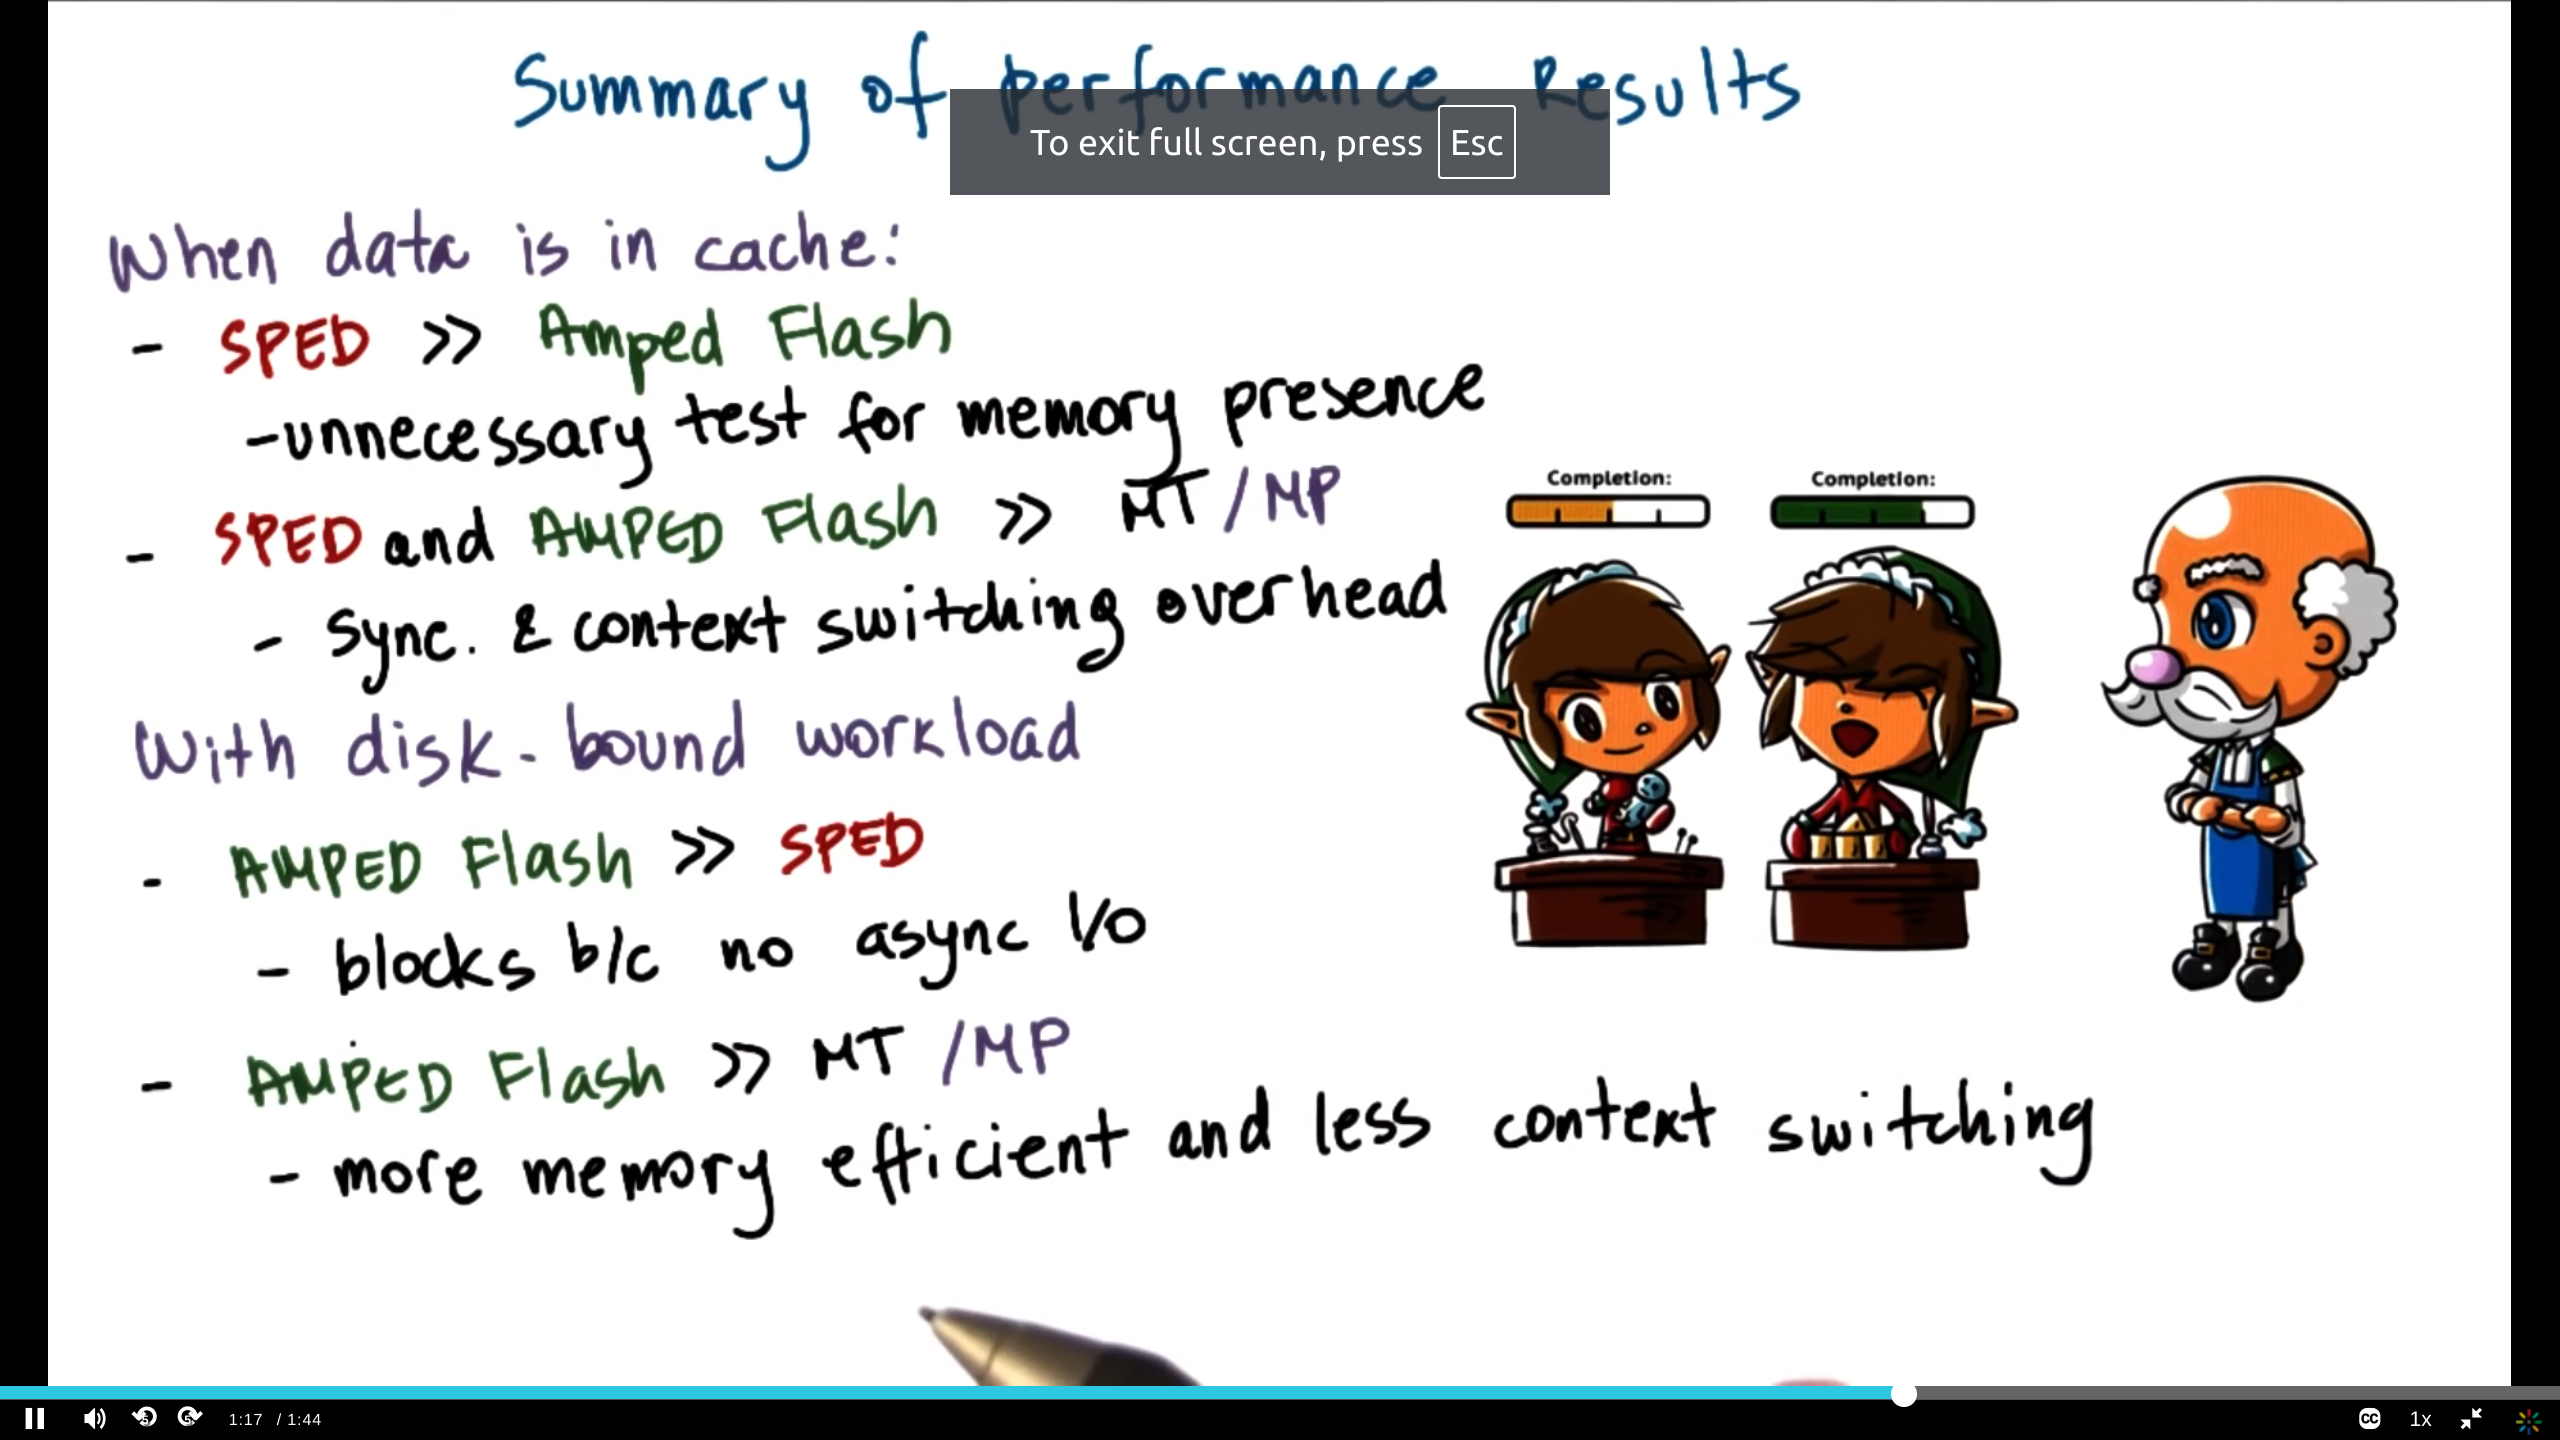 Summary of performance Results
To exit full screen, press Esc
When data is in cache:
- SPED >> Amped Flash
-unnecessary test for memory presence
- SPED and AMPED Flash >> MT/MP
- Sync. & context switching overhead
Completion:
Completion:
With disk-bound workload
- AMPED Flash >> SPED
- blocks b/c no async I/O
- AMPED Flash >> MT/MP
- more memory efficient and less context switching
5
5
1:17 / 1:44
CC
1x